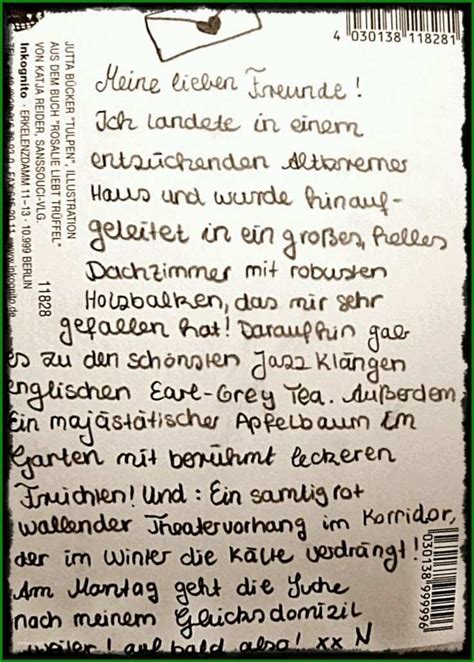 4 030138 118281
JUTTA BÜCKER "TULPEN", ILLUSTRATION
AUS DEM BUCH "ROSALIE LIEBT TRÜFFEL"
VON KATJA REIDER, SANSSOUCI-VLG.
Inkognito · ERKELENZDAMM 11–13 · 10.999 BERLIN
www.inkognito.de
11828
Meine lieben Freunde!
Ich landete in einem
entzückenden Altbremer
Haus und wurde hinauf-
geleitet in ein großes, helles
Dachzimmer mit robusten
Holzbalken, das mir sehr
gefallen hat! Daraufhin gab
es zu den schönsten Jazz Klängen
englischen Earl-Grey Tea. Außerdem,
Ein majästätischer Apfelbaum im
Garten mit berühmt leckeren
Früchten! Und: Ein samtigrot
wallender Theatervorhang im Korridor,
der im Winter die Kälte verdrängt!
Am Montag geht die Suche
nach meinem Glücksdomizil
weiter! auf bald also! xx N
030138 999996